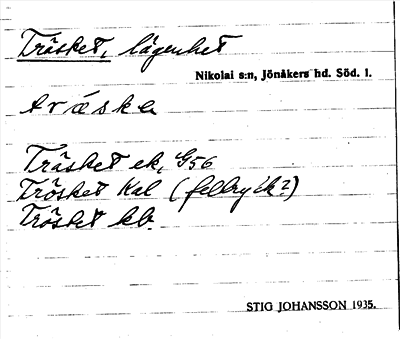 Träsket, lägenhet
Nikolai s:n, Jönåkers hd. Söd. l.
træske
Träsket ek, G56
Trösket Kal (feltryck?)
Trösket kb.
STIG JOHANSSON 1935.